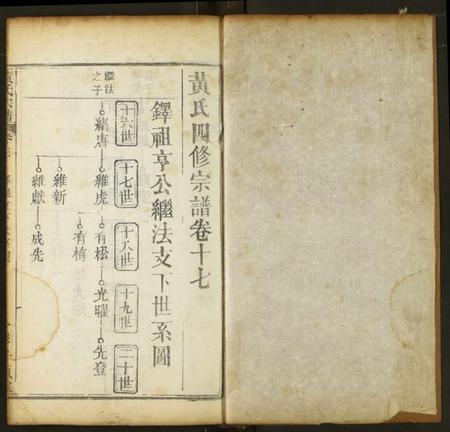 黃氏四修宗譜卷十七
鐸祖亨公繼法支下世系圖
十六世
十七世
十八世
十九世
二十世
繼法之子
緒唐
維虎
有松
光曜
先登
有椅
維新
維獻
成先